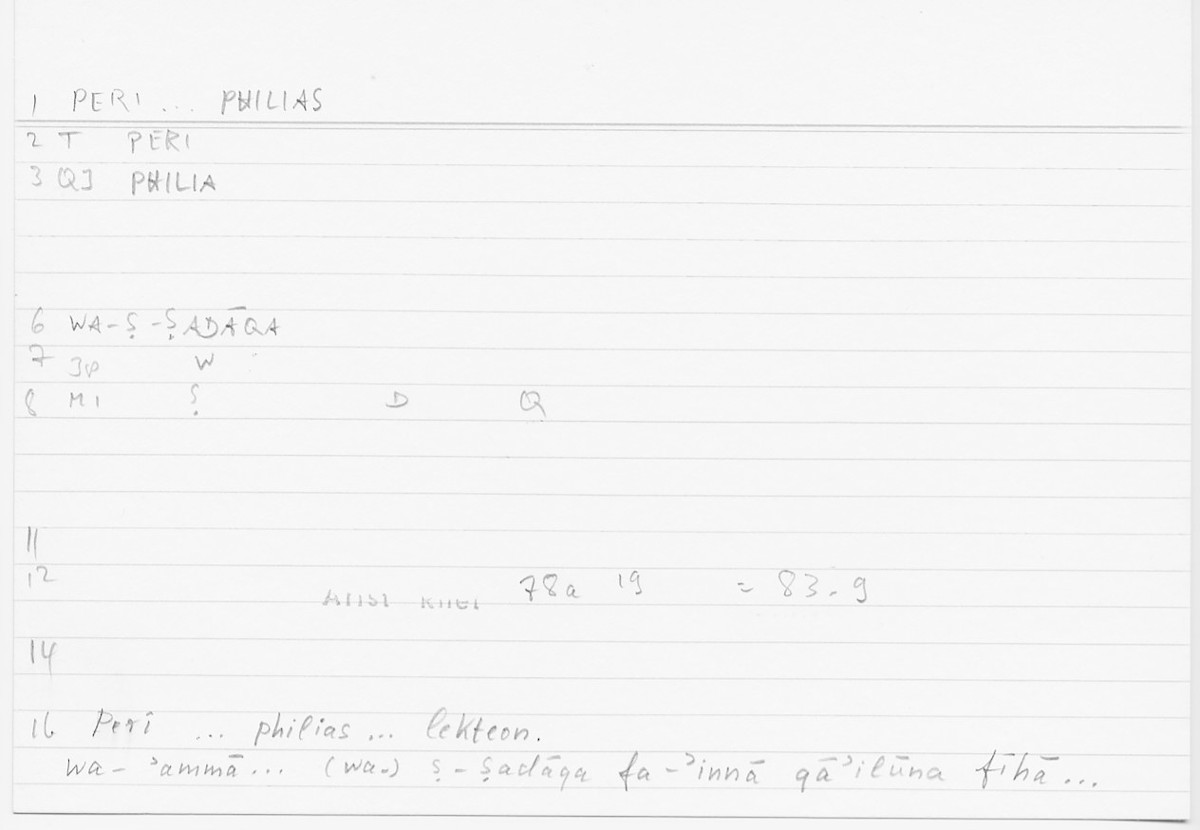 1 PERI ... PHILIAS
2 T PERI
3 QJ PHILIA
6 WA-Ṣ-ṢADĀQA
7 3φ W
8 M1 Ṣ D Q
11
12 78a 19 = 83.9
14
16 Peri ... philias ... lekteon.
wa-ʾammā... (wa-) ṣ-ṣadāqa fa-ʾinnā qāʾilūna fīhā...